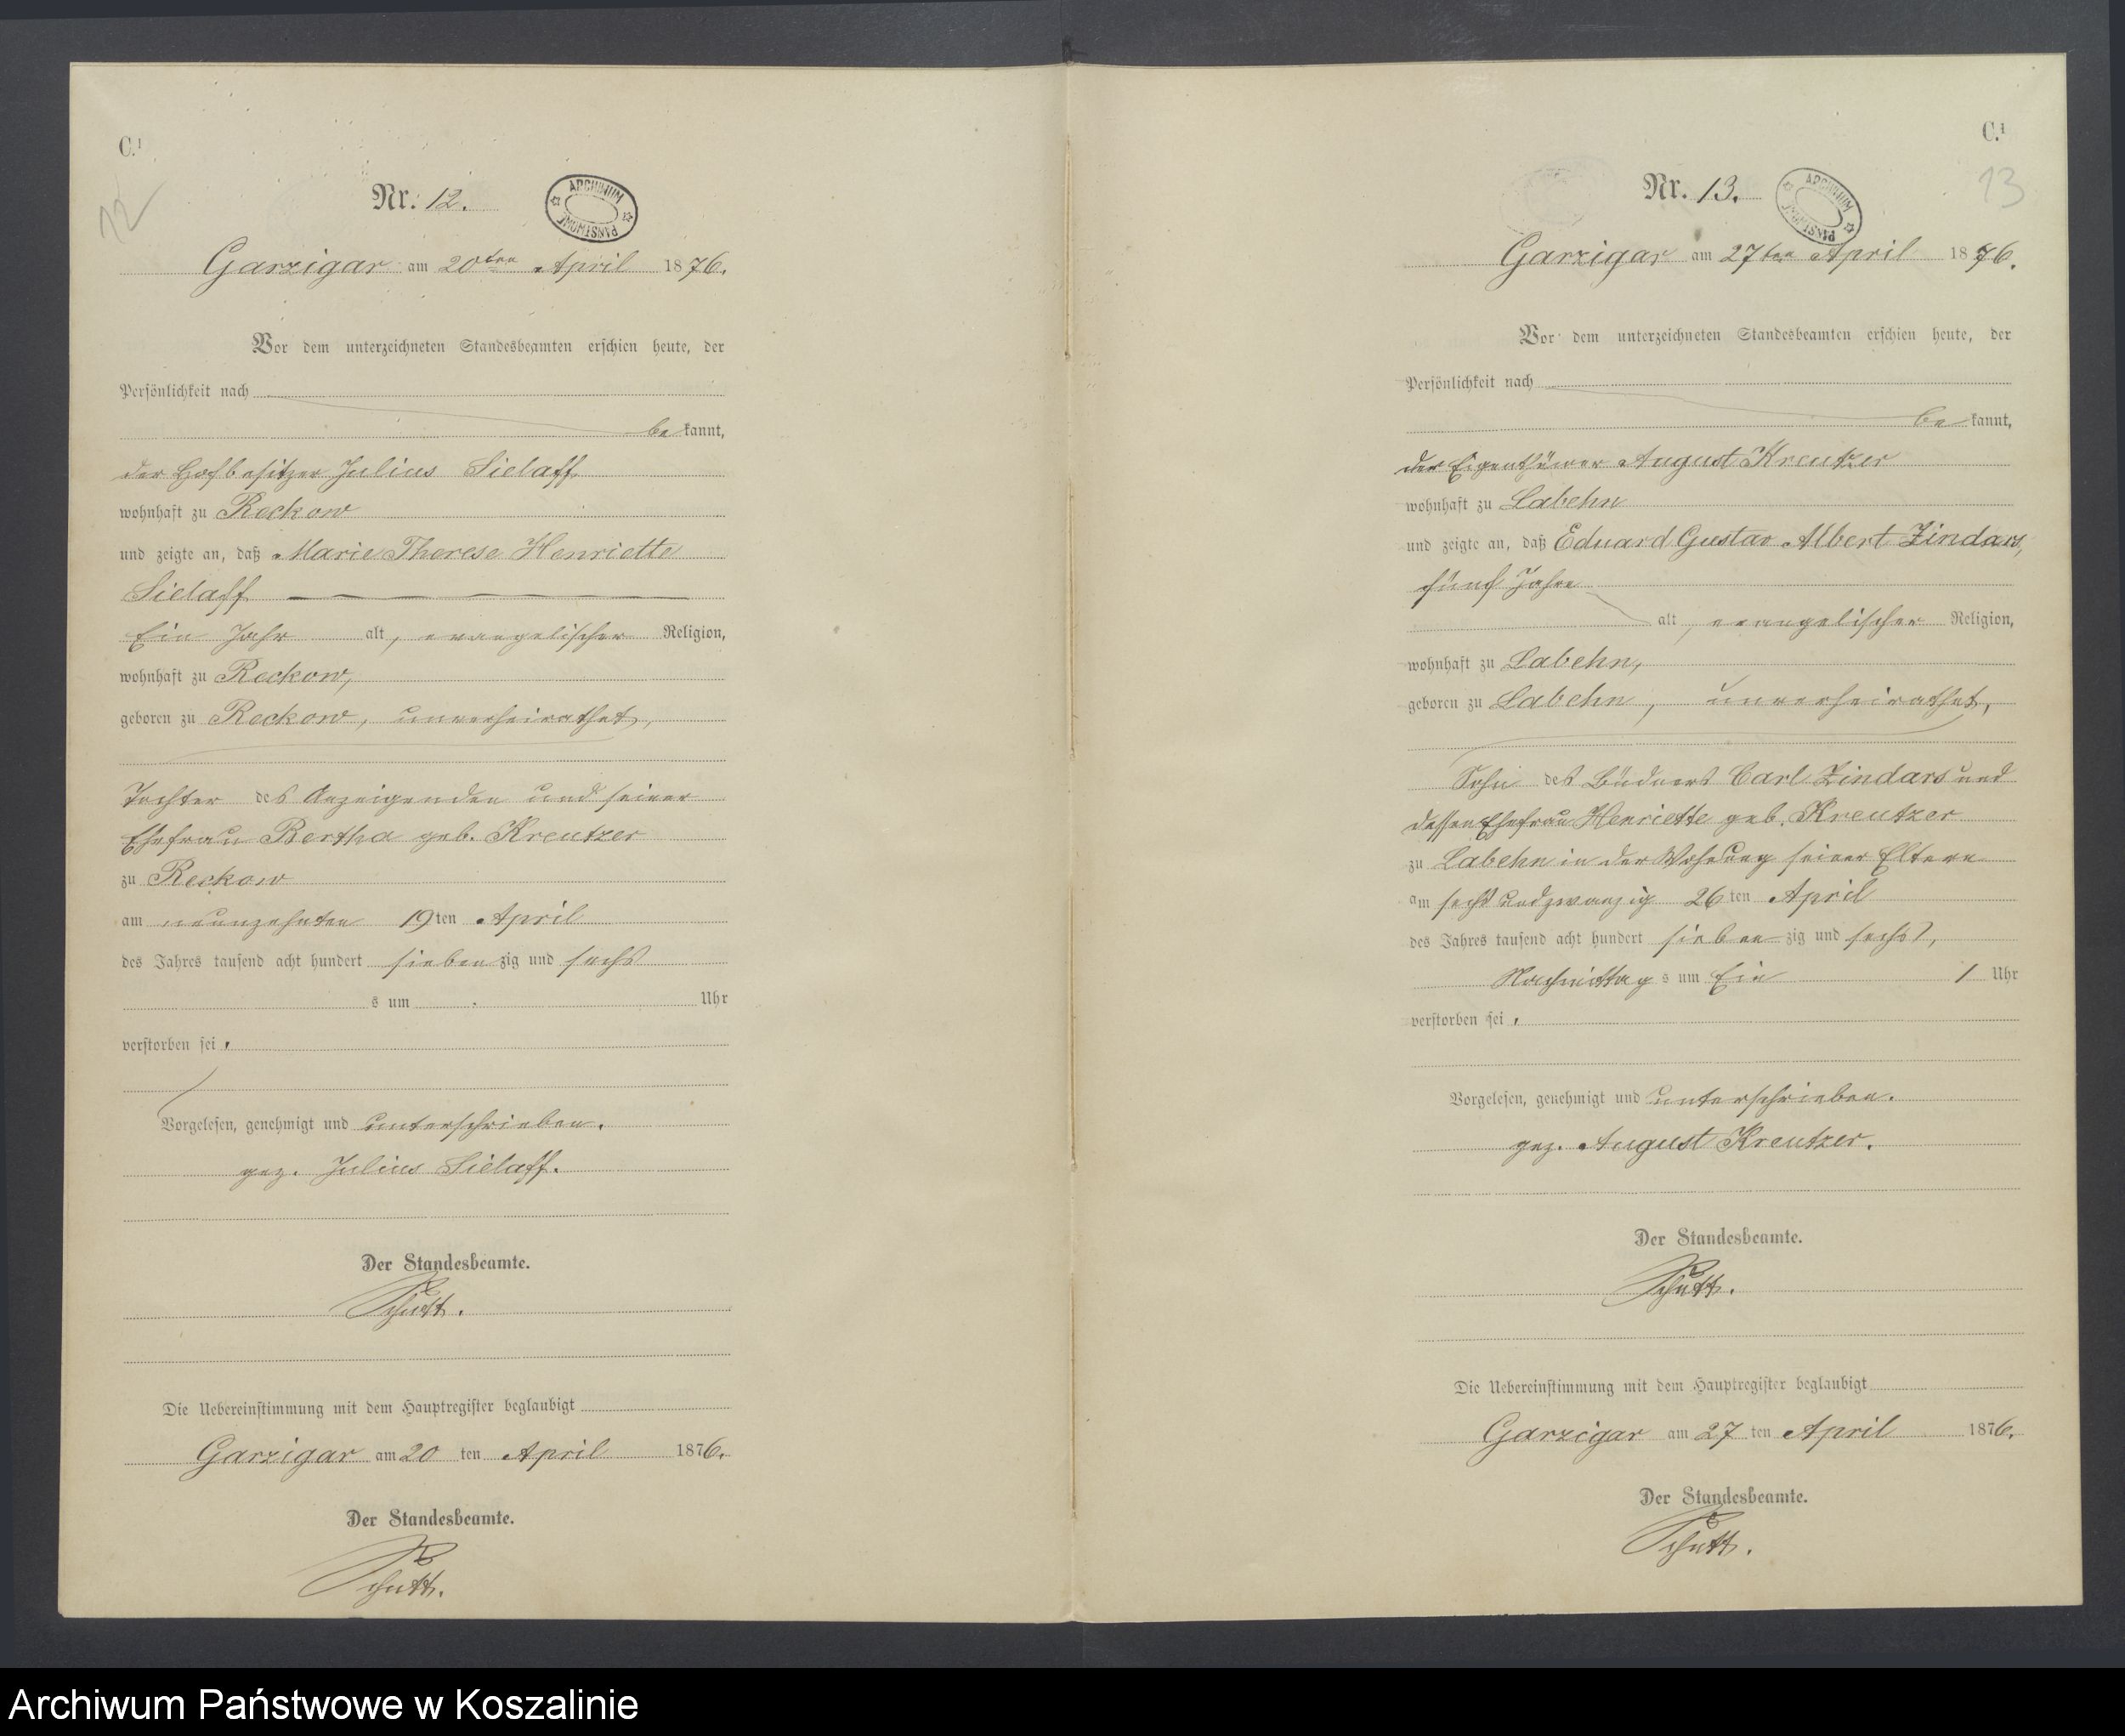 C.1
12
Nr. 12.
ARCHIWUM PAŃSTWOWE
Garzigar am 20ten April 1876.
Vor dem unterzeichneten Standesbeamten erschien heute, der
Persönlichkeit nach
bekannt,
der Hofbesitzer Julius Sielaff
wohnhaft zu Reckow
und zeigte an, daß Marie Therese Henriette
Sielaff
Ein Jahr alt, evangelischer Religion,
wohnhaft zu Reckow,
geboren zu Reckow, unverheirathet,
Tochter des Anzeigenden und seiner
Ehefrau Bertha geb. Kreutzer
zu Reckow
am neunzehnten 19ten April
des Jahres tausend acht hundert siebenzig und sechs
s um Uhr
verstorben sei.
Vorgelesen, genehmigt und unterschrieben.
gez. Julius Sielaff.
Der Standesbeamte.
Schütt.
Die Uebereinstimmung mit dem Hauptregister beglaubigt
Garzigar am 20 ten April 1876.
Der Standesbeamte.
Schütt.
C.1
13
Nr. 13.
ARCHIWUM PAŃSTWOWE
Garzigar am 27ten April 1876.
Vor dem unterzeichneten Standesbeamten erschien heute, der
Persönlichkeit nach
bekannt,
der Eigenthümer August Kreutzer
wohnhaft zu Labehn
und zeigte an, daß Eduard Gustav Albert Zindars,
fünf Jahre
alt, evangelischer Religion,
wohnhaft zu Labehn,
geboren zu Labehn, unverheirathet,
Sohn des Büdners Carl Zindars und
dessen Ehefrau Henriette geb. Kreutzer
zu Labehn in der Wohnung seiner Eltern
am sechs und zwanzig 26ten April
des Jahres tausend acht hundert siebenzig und sechs,
Nachmittags um Ein 1 Uhr
verstorben sei.
Vorgelesen, genehmigt und unterschrieben.
gez. August Kreutzer.
Der Standesbeamte.
Schütt.
Die Uebereinstimmung mit dem Hauptregister beglaubigt
Garzigar am 27 ten April 1876.
Der Standesbeamte.
Schütt.
Archiwum Państwowe w Koszalinie